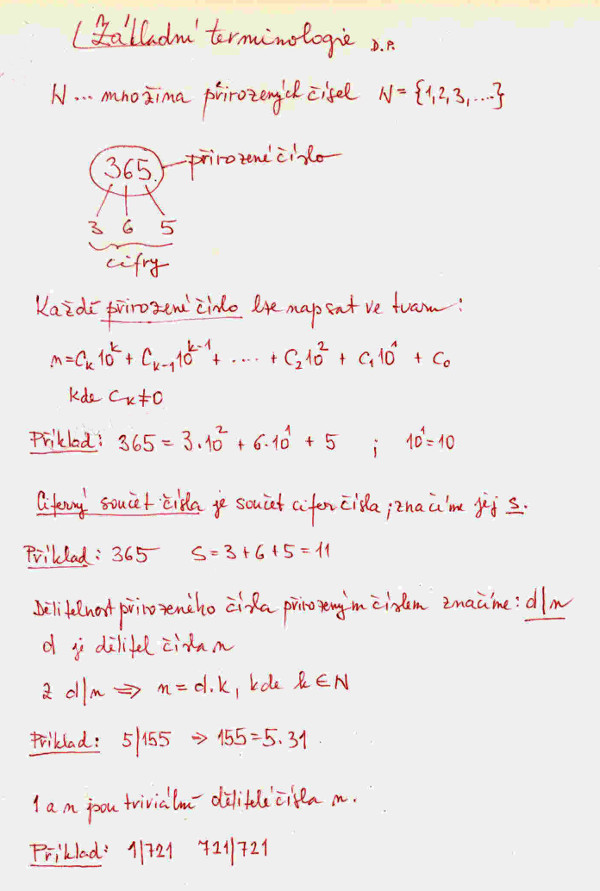 Základní terminologie D.P.
N ... množina přirozených čísel N = {1,2,3,....}
365 přirozené číslo
3 6 5
cifry
Každé přirozené číslo lze napsat ve tvaru:
n = Cₖ10ᵏ + Cₖ₋₁10ᵏ⁻¹ + .... + C₂10² + C₁10¹ + C₀
kde Cₖ ≠ 0
Příklad: 365 = 3.10² + 6.10¹ + 5 ; 10¹=10
Ciferný součet čísla je součet cifer čísla; značíme jej s.
Příklad: 365 S = 3+6+5 = 11
Dělitelnost přirozeného čísla přirozeným číslem značíme: d|n
d je dělitel čísla n
z d|n ⇒ n = d.k, kde k ∈ N
Příklad: 5|155 ⇒ 155 = 5.31
1 a n jsou triviální dělitelé čísla n.
Příklad: 1|721 721|721